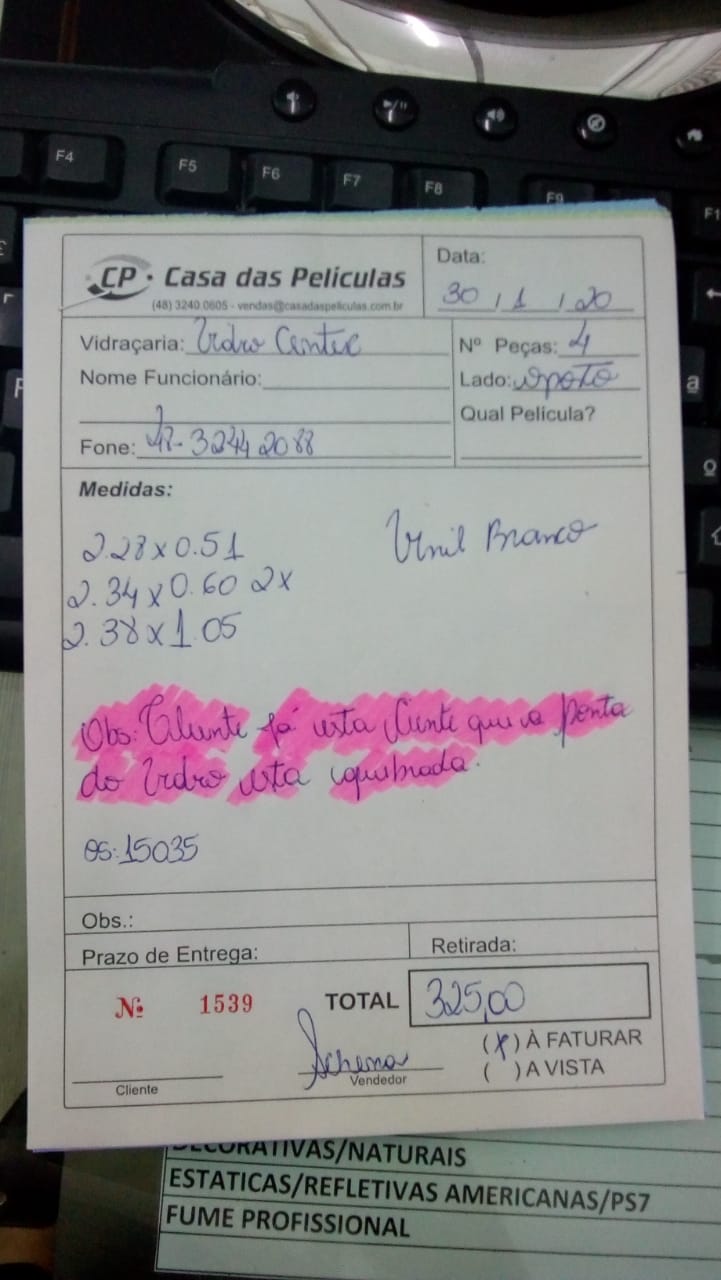 F4
F5
F6
F7
F8
F9
F1
CP Casa das Películas
(48) 3240 0605 - vendas@casadaspeliculas.com.br
Data:
30 / 1 / 20
Vidraçaria: Vidro Center
Nº Peças: 4
Nome Funcionário:
Lado: oposto
Qual Película?
Fone: 48- 3244 2088
Medidas:
2.28 x 0.51
Vinil Branco
2.34 x 0.60 2x
2.38 x 1.05
Obs: Cliente já esta ciente que a ponta
do Vidro esta quebrada.
OS: 15035
Obs.:
Prazo de Entrega:
Retirada:
Nº 1539
TOTAL 325,00
(X) À FATURAR
( ) A VISTA
Cliente
Vendedor
DECORATIVAS/NATURAIS
ESTATICAS/REFLETIVAS AMERICANAS/PS7
FUME PROFISSIONAL